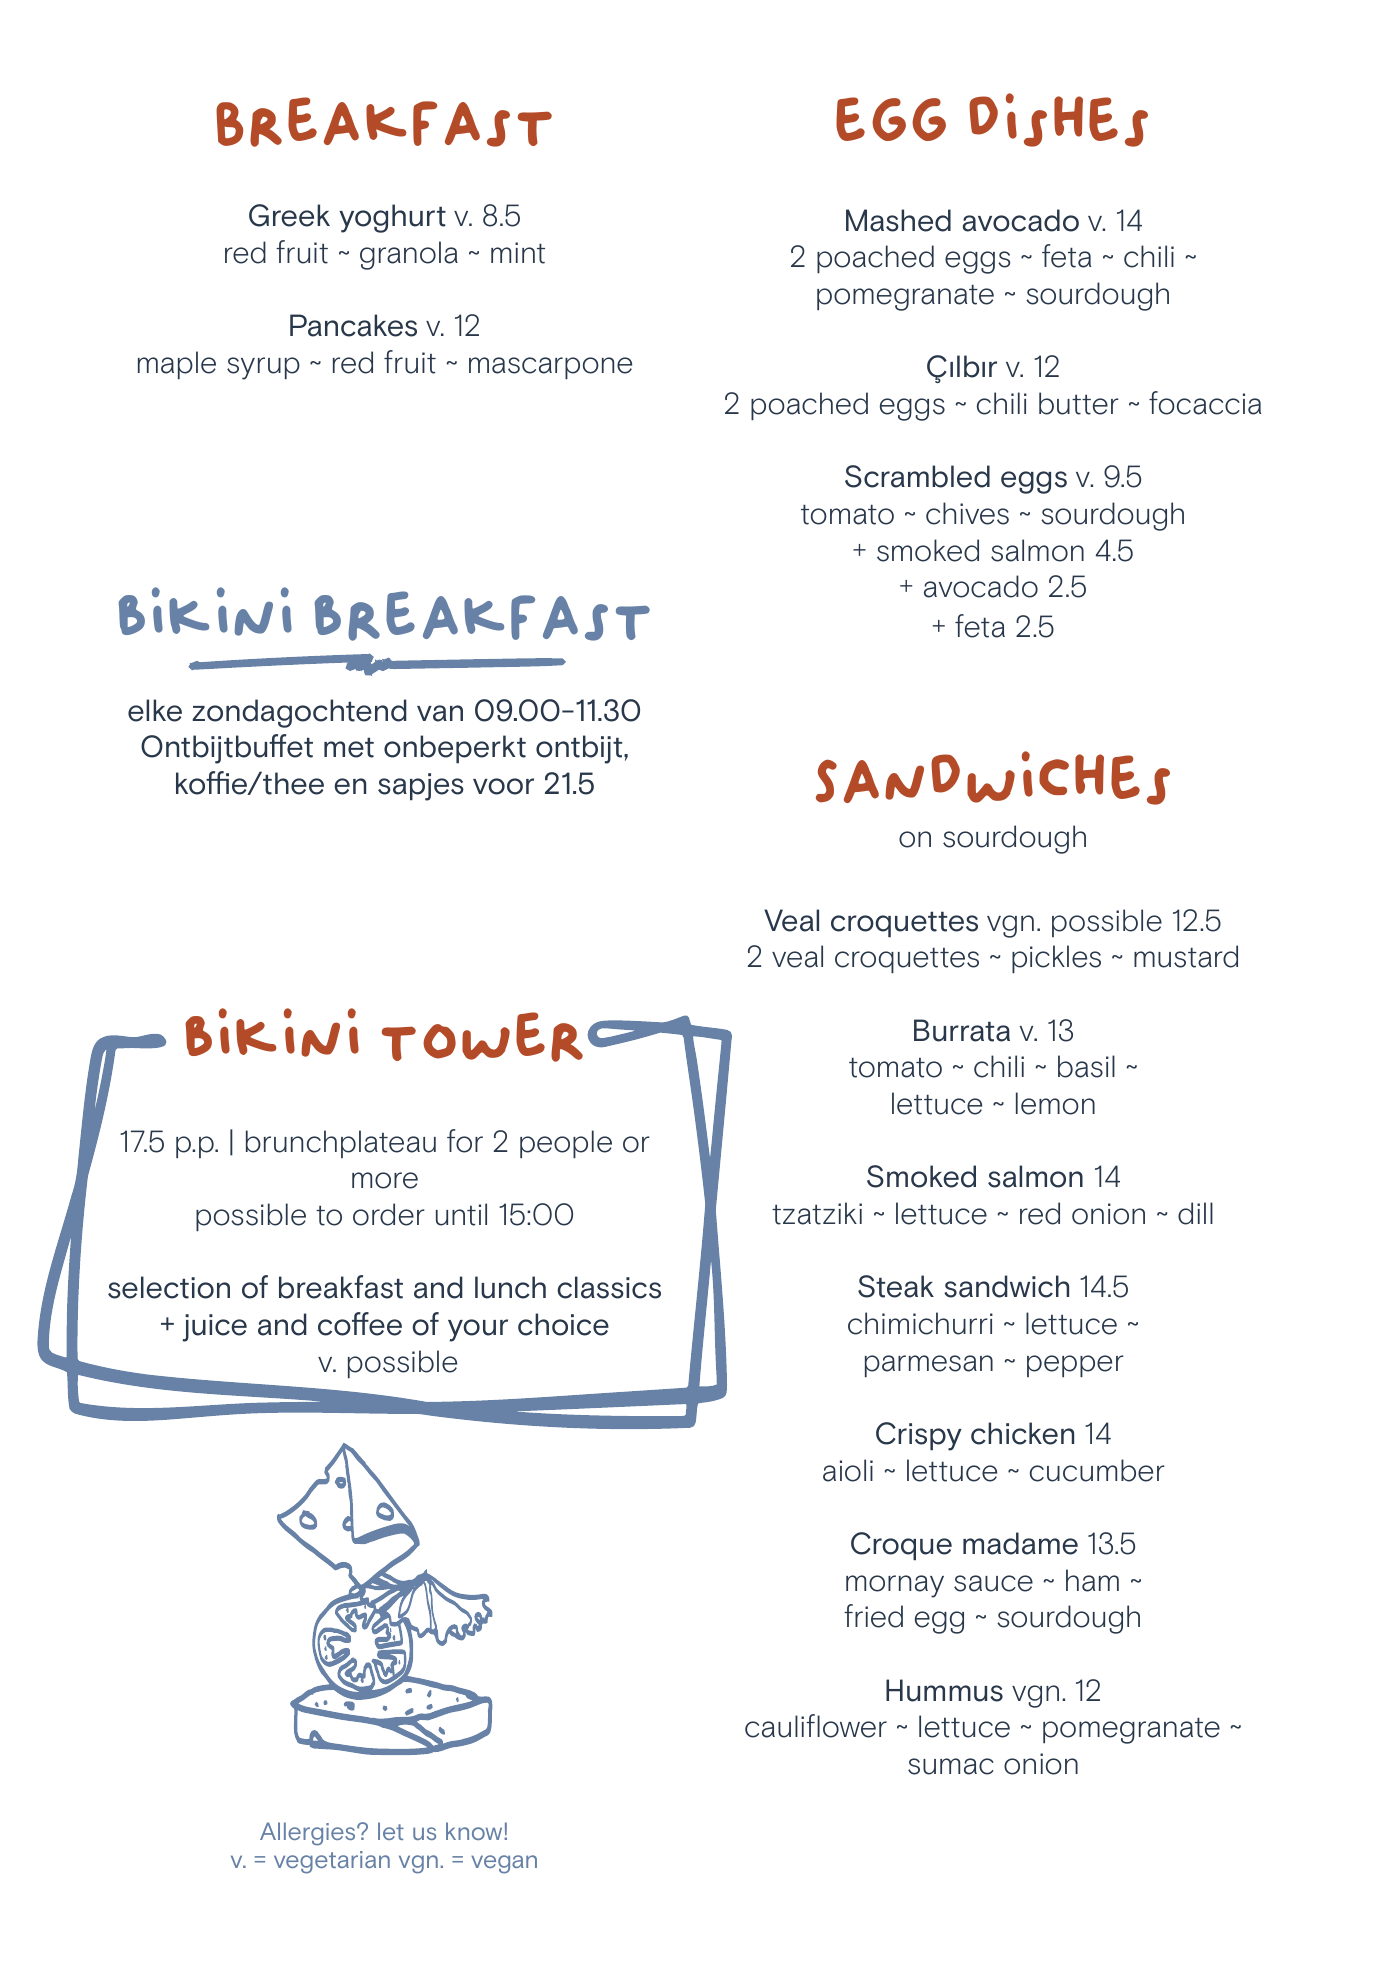 BREAKFAST
Greek yoghurt v. 8.5
red fruit ~ granola ~ mint
Pancakes v. 12
maple syrup ~ red fruit ~ mascarpone
BiKiNi BREAKFAST
elke zondagochtend van 09.00-11.30
Ontbijtbuffet met onbeperkt ontbijt,
koffie/thee en sapjes voor 21.5
BiKiNi TOWER
17.5 p.p. | brunchplateau for 2 people or
more
possible to order until 15:00
selection of breakfast and lunch classics
+ juice and coffee of your choice
v. possible
Allergies? let us know!
v. = vegetarian vgn. = vegan
EGG DiSHES
Mashed avocado v. 14
2 poached eggs ~ feta ~ chili ~
pomegranate ~ sourdough
Çılbır v. 12
2 poached eggs ~ chili butter ~ focaccia
Scrambled eggs v. 9.5
tomato ~ chives ~ sourdough
+ smoked salmon 4.5
+ avocado 2.5
+ feta 2.5
SANDWiCHES
on sourdough
Veal croquettes vgn. possible 12.5
2 veal croquettes ~ pickles ~ mustard
Burrata v. 13
tomato ~ chili ~ basil ~
lettuce ~ lemon
Smoked salmon 14
tzatziki ~ lettuce ~ red onion ~ dill
Steak sandwich 14.5
chimichurri ~ lettuce ~
parmesan ~ pepper
Crispy chicken 14
aioli ~ lettuce ~ cucumber
Croque madame 13.5
mornay sauce ~ ham ~
fried egg ~ sourdough
Hummus vgn. 12
cauliflower ~ lettuce ~ pomegranate ~
sumac onion